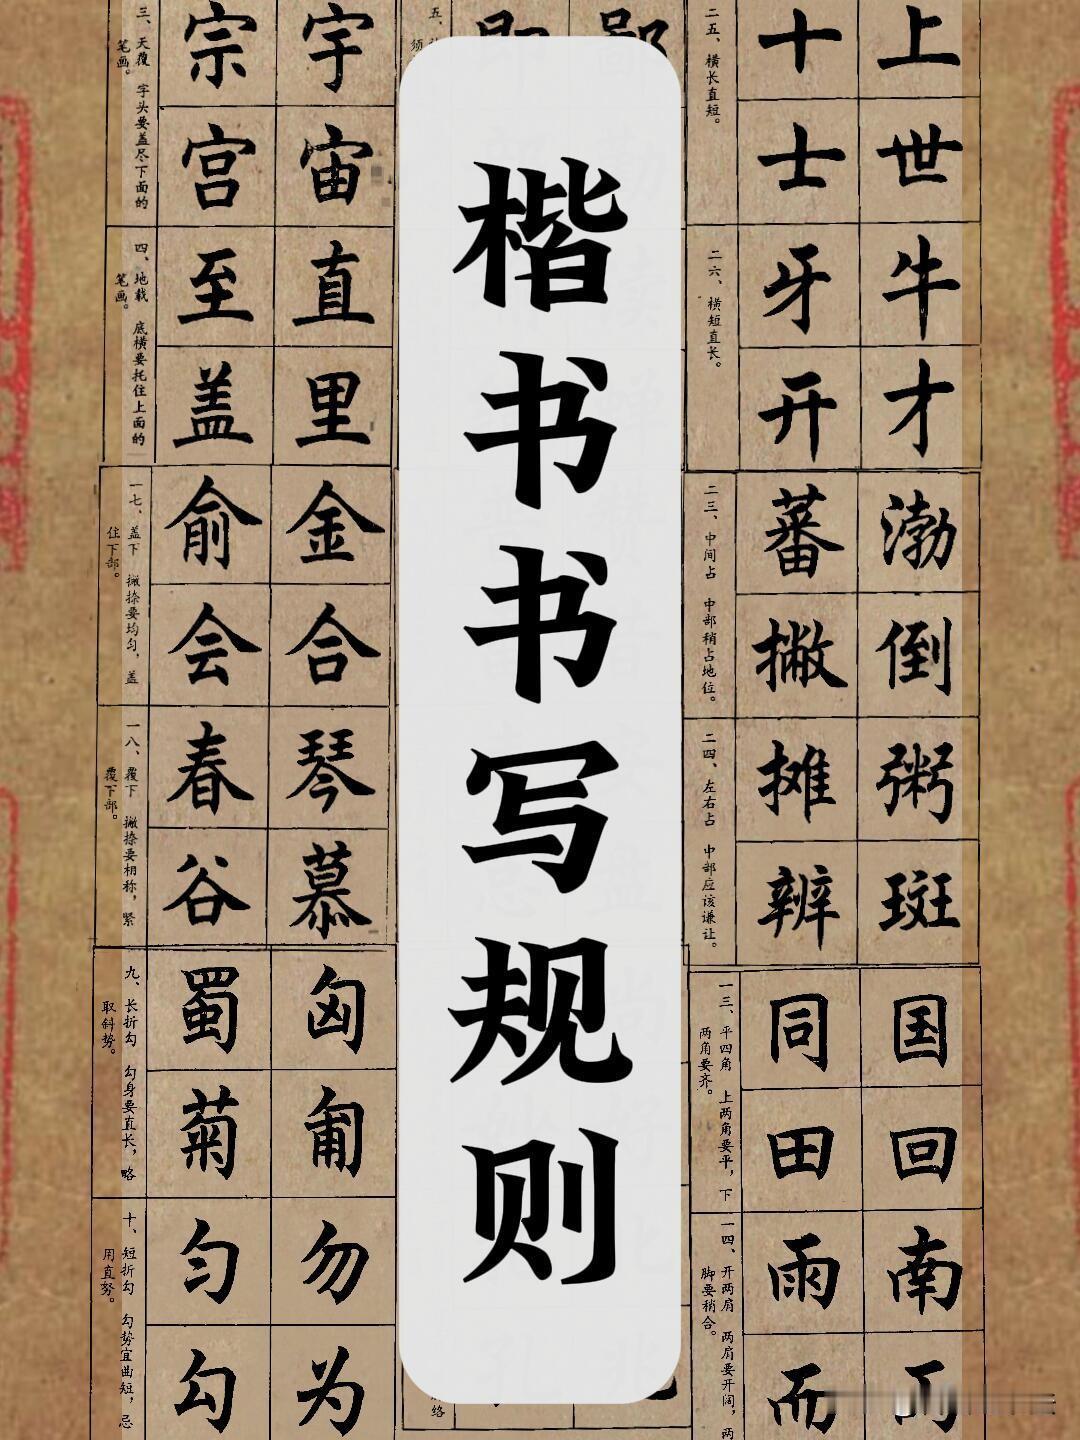 楷书书写规则
三、天覆 字头要盖尽下面的
笔画。
宇 宙
宗 宫
四、地载 底横要托住上面的
笔画。
直 里
至 盖
一七、盖下 撇捺要均匀，盖
住下部。
金 合
俞 会
一八、覆下 撇捺要相称，紧
覆下部。
琴 慕
春 谷
九、长折勾 勾身要直长，略
取斜势。
匈 匍
蜀 菊
十、短折勾 勾势宜曲短，忌
用直努。
勿 为
匀 勾
二五、横长直短。
上 世
十 士
二六、横短直长。
牛 才
牙 开
二三、中间占 中部稍占地位。
渤 倒
蕃 撇
二四、左右占 中部应该谦让。
粥 斑
摊 辨
一三、平四角 上两角要平，下
两角要齐。
国 回
同 田
一四、开两肩 两肩要开阔，两
脚要稍合。
南
雨 而